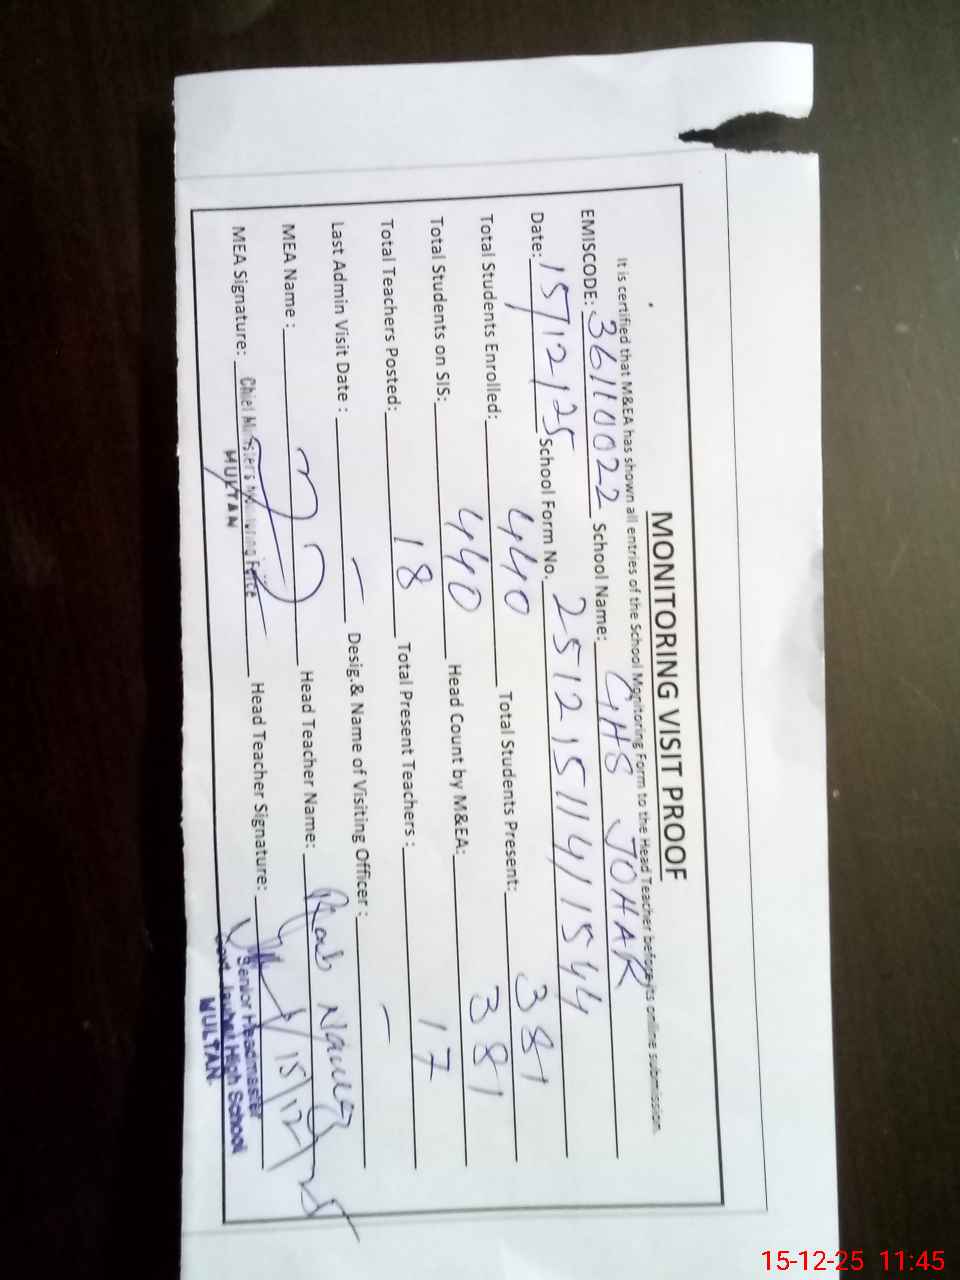 MONITORING VISIT PROOF
It is certified that M&EA has shown all entries of the School Monitoring Form to the Head Teacher before its online submission.
EMISCODE: 36110022 School Name: GHS JOHAR
Date: 15/12/25 School Form No. 25121511411544
Total Students Enrolled: 440 Total Students Present: 381
Total Students on SIS: 440 Head Count by M&EA: 381
Total Teachers Posted: 18 Total Present Teachers : 17
Last Admin Visit Date : — Desig.& Name of Visiting Officer : —
MEA Name : Head Teacher Name: Rab Nawaz
MEA Signature: Head Teacher Signature: 15/12/25
Chief Minister's Monitoring Force
MULTAN
Senior Headmaster
Govt. Jauhar High School
MULTAN.
15-12-25 11:45